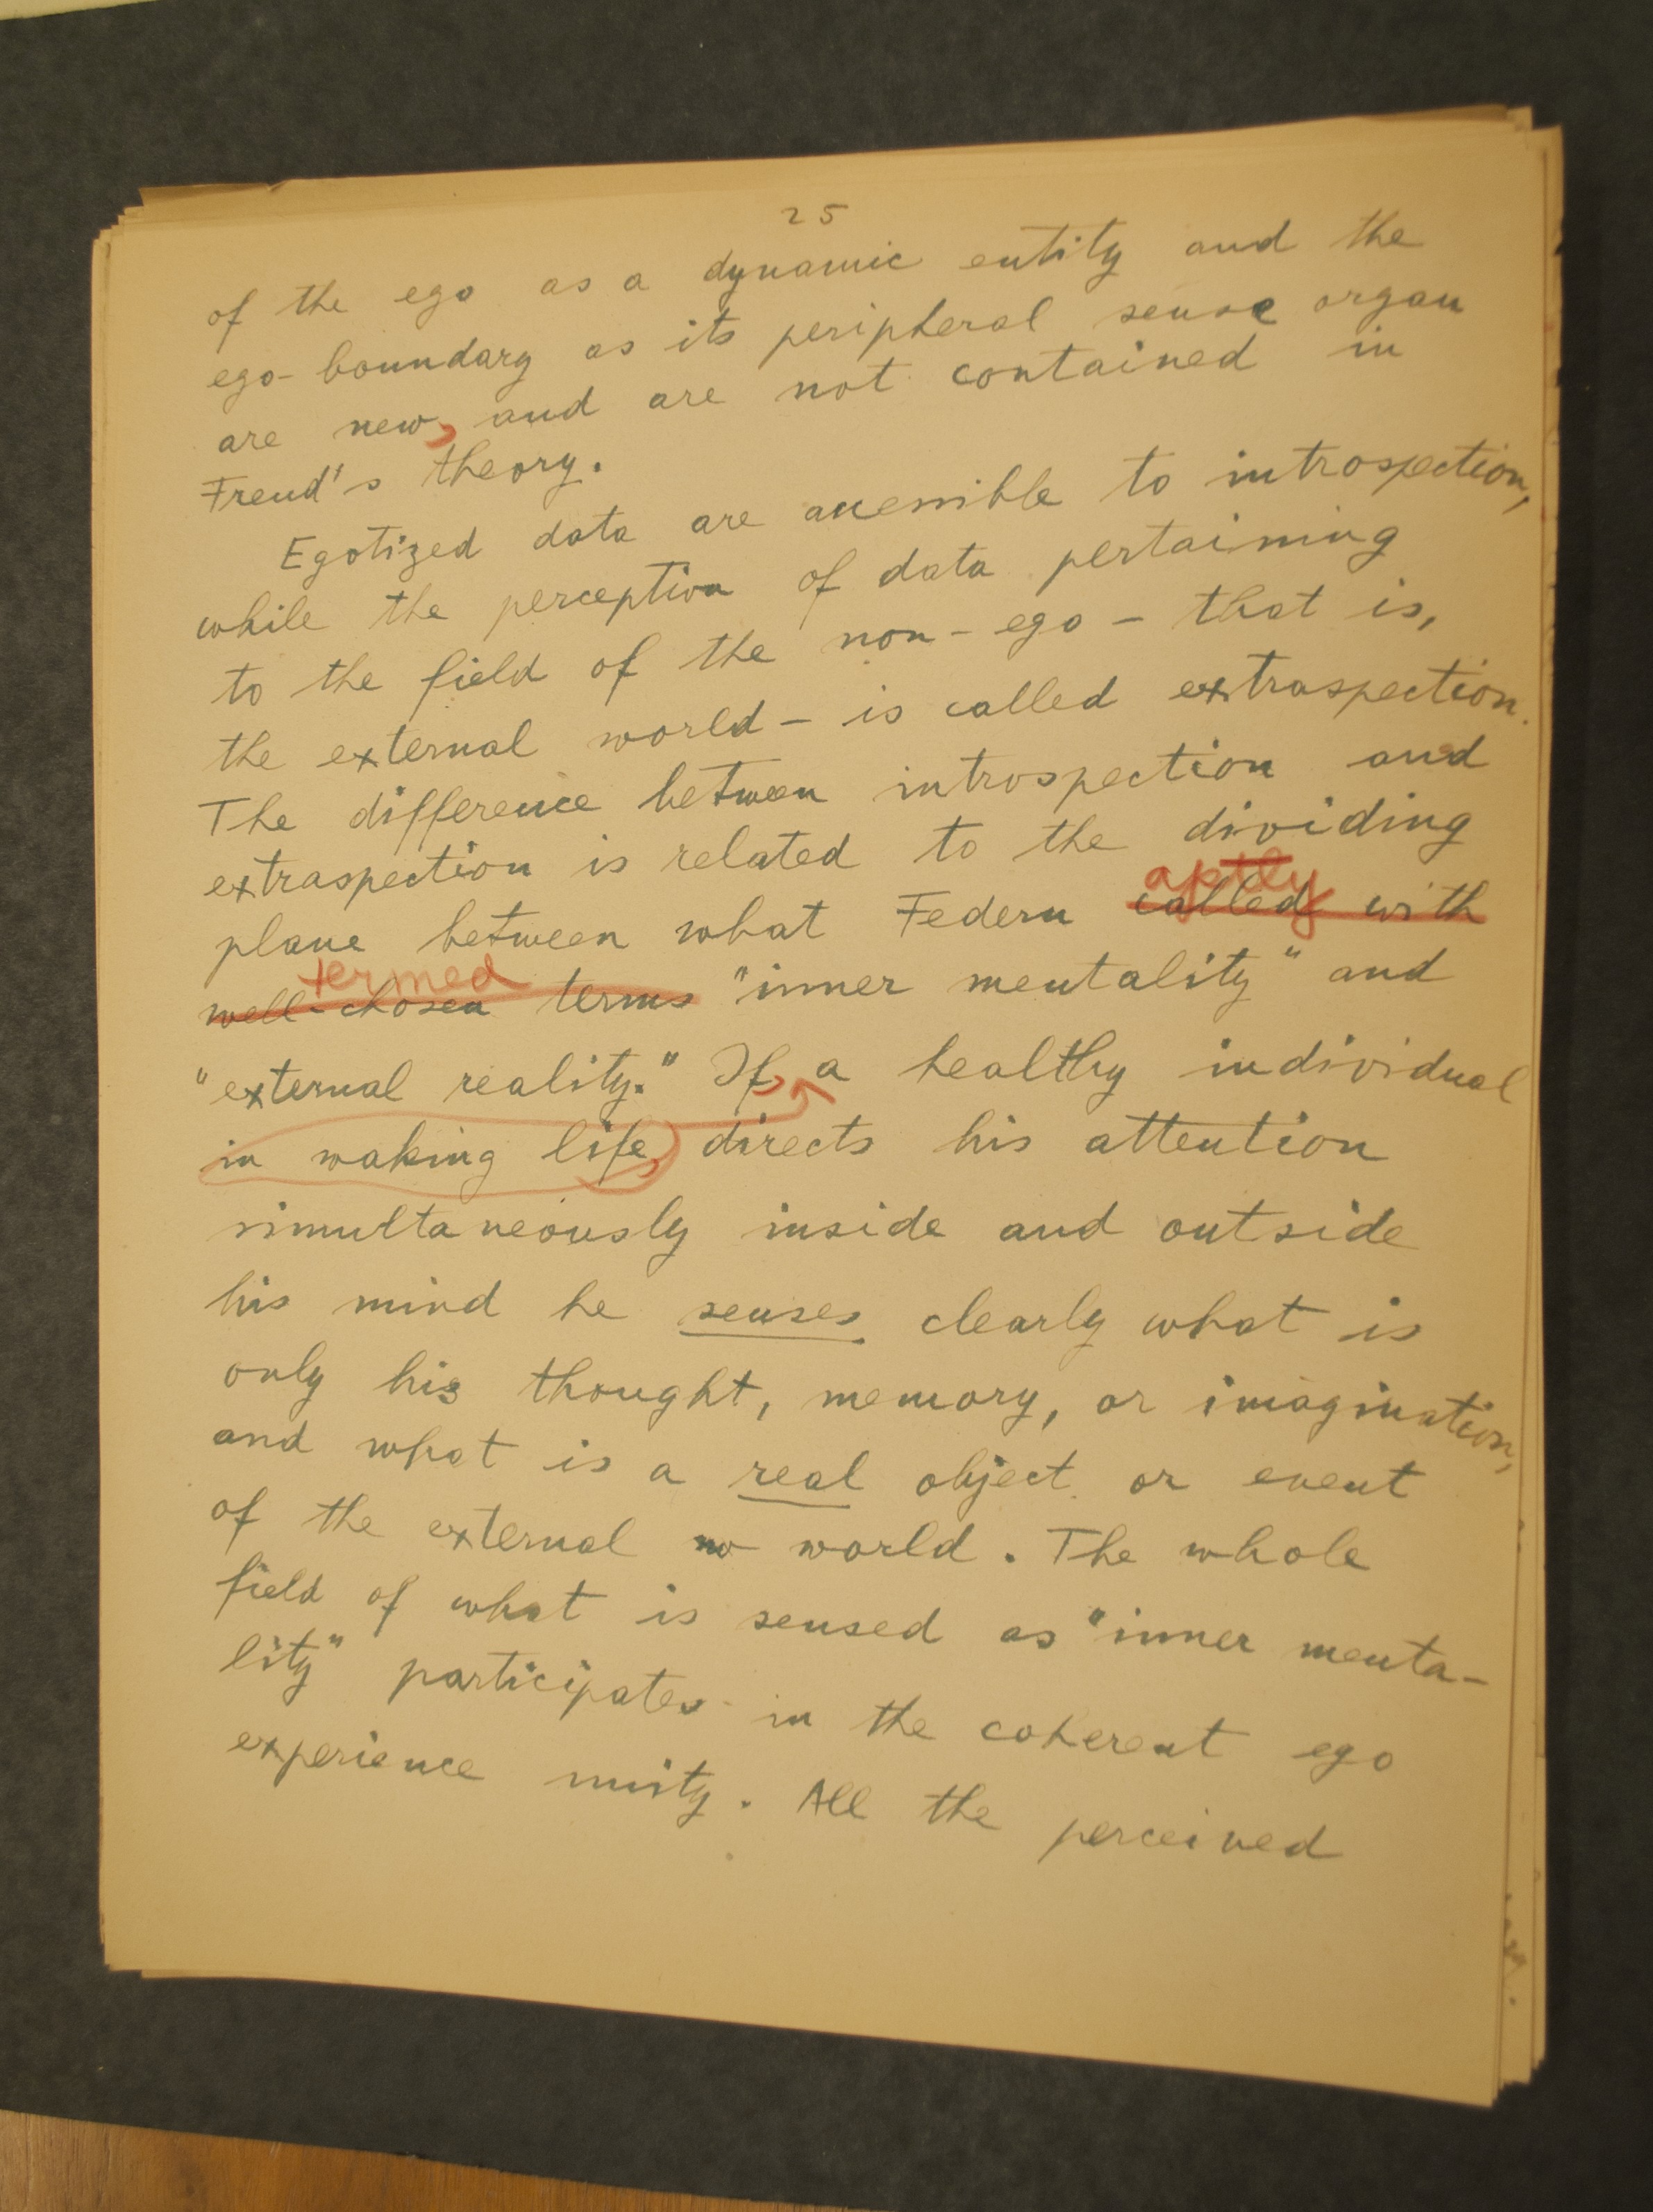 25
of the ego as a dynamic entity and the
ego-boundary as its peripheral sense organ
are new, and are not contained in
Freud's theory.
Egotized data are accessible to introspection,
while the perception of data pertaining
to the field of the non-ego - that is,
the external world - is called extraspection.
The difference between introspection and
extraspection is related to the dividing
aptly
plane between what Federn called with
termed
well-chosen terms "inner mentality" and
"external reality." If, a healthy individual
in waking life, directs his attention
simultaneously inside and outside
his mind he senses clearly what is
only his thought, memory, or imagination,
and what is a real object or event
of the external w world. The whole
field of what is sensed as "inner menta-
lity" participates in the coherent ego
experience unity. All the perceived